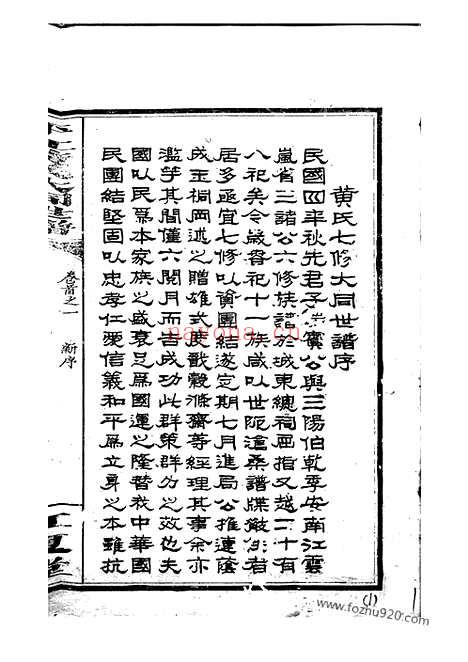 黄氏七修大同世譜序
民國四年秋先君子淇賓公與三陽伯乾季安南江雲
嵐省三諸公六修族譜於城東總祠屈指又越二十有
八祀矣今歲春祀十一族咸以世阨滄桑譜牒散佚者
居多亟宜七修以資團結遂定期七月進局公推連蔭
成玉禍岡述之贈雄式成猷穀滌齋等經理其事余亦
濫竽其間僅六閱月而告成功此群策群力之效也夫
國以民為本家族之盛衰足為國運之隆替我中華國
民團結堅固以忠孝仁愛信義和平為立身之本雖抗
卷首之一
新序
江夏堂
(1)
nayona.cn
www.fozhu920.com